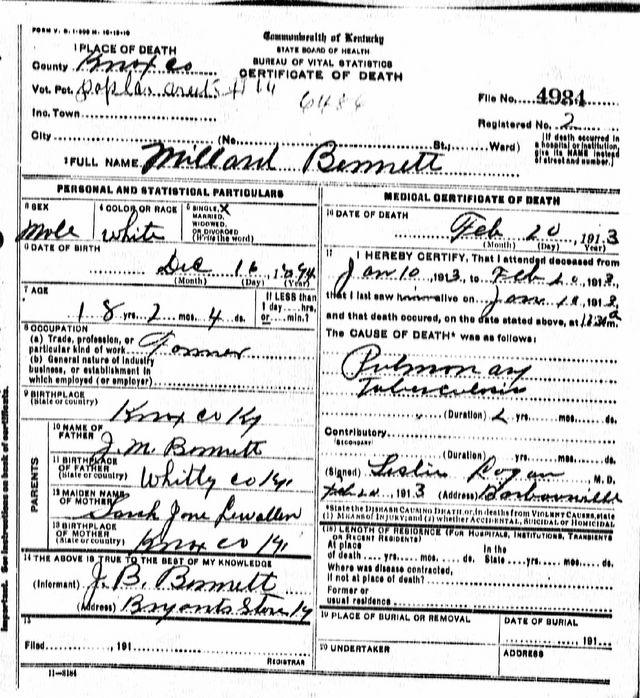 FORM V. S. 1-500 M. 10-13-10
Commonwealth of Kentucky
STATE BOARD OF HEALTH
BUREAU OF VITAL STATISTICS
CERTIFICATE OF DEATH
1 PLACE OF DEATH
County Knox co
Vot. Pct. poplar
6484
Inc. Town
City (No. St.; Ward)
File No. 4984
Registered No. 2
[If death occurred in a hospital or institution, give its NAME instead of street and number.]
2 FULL NAME Millard Bennett
PERSONAL AND STATISTICAL PARTICULARS
3 SEX Male
4 COLOR OR RACE White
5 SINGLE, X
MARRIED,
WIDOWED,
OR DIVORCED
(Write the word)
6 DATE OF BIRTH
Dec 16 1894
(Month) (Day) (Year)
7 AGE
18 yrs. 2 mos. 4 ds.
If LESS than
1 day ... hrs.
or ... min.?
8 OCCUPATION
(a) Trade, profession, or
particular kind of work Farmer
(b) General nature of industry
business, or establishment in
which employed (or employer)
9 BIRTHPLACE
(State or country) Knox co Ky
PARENTS
10 NAME OF
FATHER J. M. Bennett
11 BIRTHPLACE
OF FATHER
(State or country) Whitly co Ky.
12 MAIDEN NAME
OF MOTHER Sarah Jane Lewallen
13 BIRTHPLACE
OF MOTHER
(State or country) Knox co Ky.
14 THE ABOVE IS TRUE TO THE BEST OF MY KNOWLEDGE
(Informant) J. B. Bennett
(Address) Bryants Store Ky
15
Filed 191
REGISTRAR
11-5184
MEDICAL CERTIFICATE OF DEATH
16 DATE OF DEATH
Feb 20, 1913
(Month) (Day) (Year)
17 I HEREBY CERTIFY, That I attended deceased from
Jan 10, 1913, to Feb 20, 1913,
that I last saw him alive on Jan 1913,
and that death occured, on the date stated above, at m.
The CAUSE OF DEATH* was as follows:
Pulmonary
Tuberculosis
(Duration) 2 yrs. mos. ds.
Contributory
(SECONDARY)
(Duration) yrs. mos. ds.
(Signed) Leslie Logan M. D.
Feb 20 1913 (Address) Barbourville
*State the DISEASE CAUSING DEATH, or, in deaths from VIOLENT CAUSES, state
(1) MEANS OF INJURY; and (2) whether ACCIDENTAL, SUICIDAL or HOMICIDAL
(18) LENGTH OF RESIDENCE (FOR HOSPITALS, INSTITUTIONS, TRANSIENTS
OR RECENT RESIDENTS)
At place In the
of death yrs. mos. ds. State yrs. mos. ds.
Where was disease contracted,
if not at place of death?
Former or
usual residence
19 PLACE OF BURIAL OR REMOVAL
DATE OF BURIAL
191
20 UNDERTAKER
ADDRESS
Important. See instructions on back of certificate.